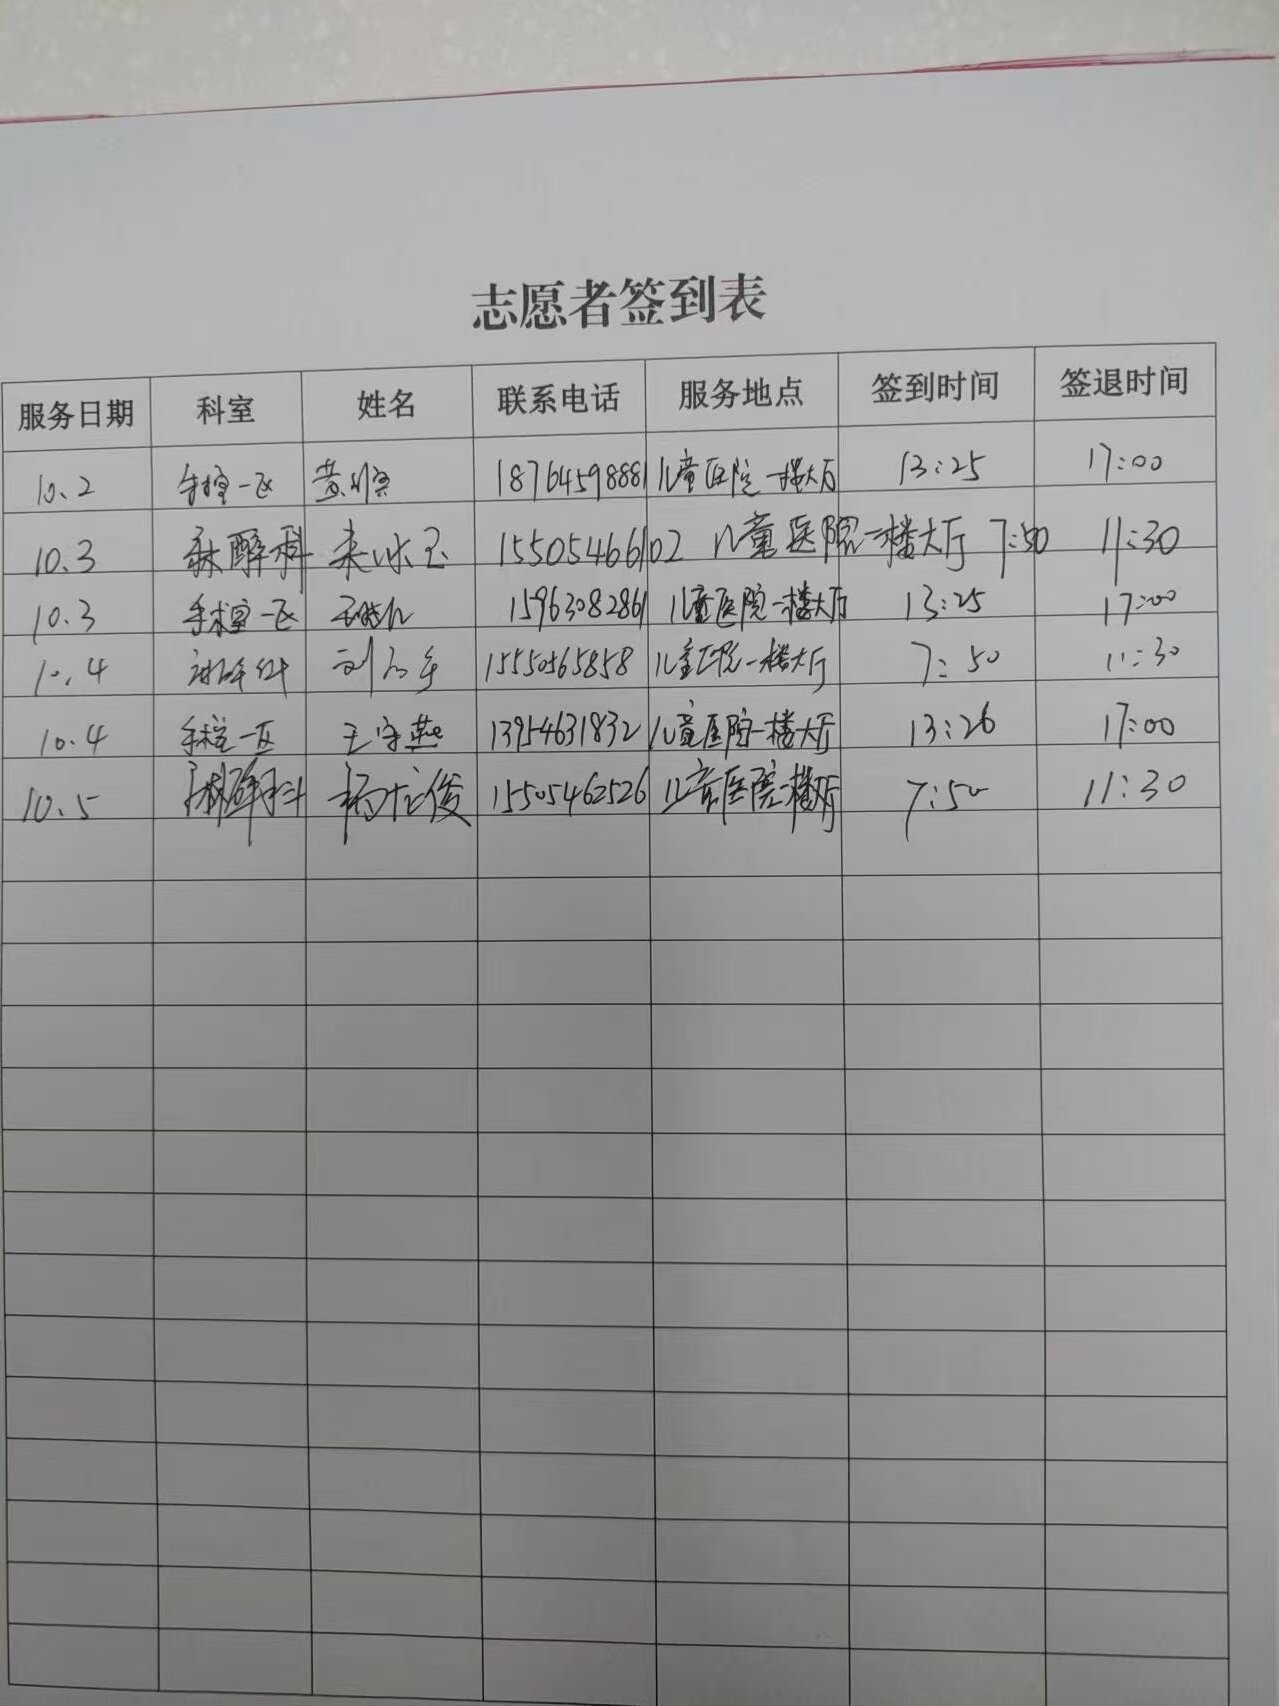 志愿者签到表
服务日期 科室 姓名 联系电话 服务地点 签到时间 签退时间
10.2 手术室一区 黄 18764598881 儿童医院一楼大厅 13:25 17:00
10.3 麻醉科 来冰玉 15505466102 儿童医院一楼大厅 7:50 11:30
10.3 手术室一区 15963082861 儿童医院一楼大厅 13:25 17:00
10.4 麻醉科 刘 15550565858 儿童医院一楼大厅 7:50 11:30
10.4 手术室一区 王守燕 13954631832 儿童医院一楼大厅 13:26 17:00
10.5 麻醉科 杨龙俊 15505462526 儿童医院一楼大厅 7:50 11:30